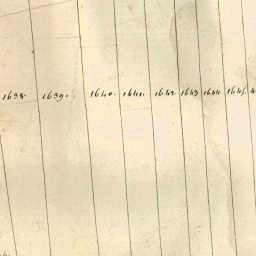 1638. 1639. 1640. 1641. 1642 1643 1644 1645.